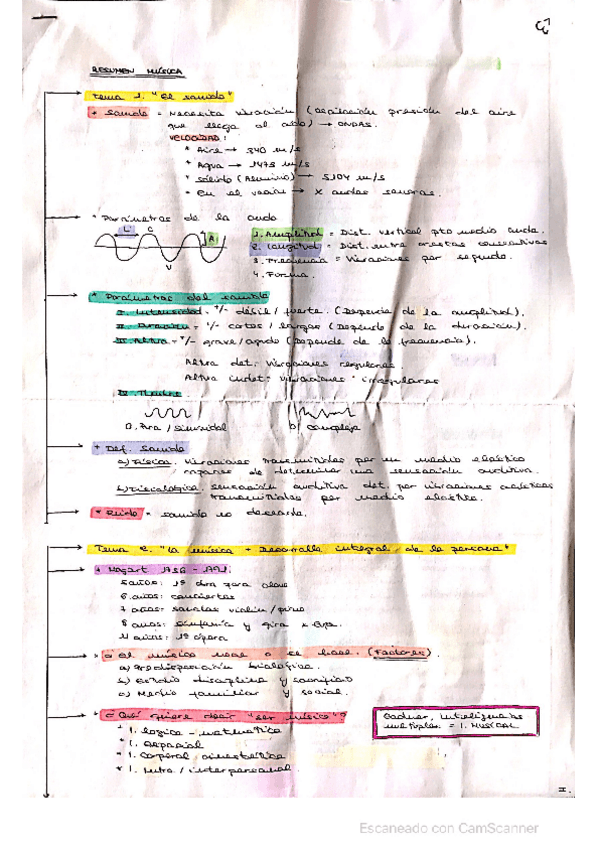 RESUMEN MÚSICA
Tema 1. "El sonido"
* Sonido = Necesita vibración (oscilación presión del aire
que llega al oído) → ONDAS.
VELOCIDAD:
* Aire → 340 m/s
* Agua → 1475 m/s
* Sólido (Aluminio) → 5104 m/s
* En el vacío → X ondas sonoras.
* Parámetros de la onda
L C A V
1. Amplitud = Dist. vertical pto medio onda.
2. Longitud = Dist. entre crestas consecutivas
3. Frecuencia = Vibraciones por segundo.
4. Forma.
* Parámetros del sonido
I. Intensidad = +/- débil / fuerte. (Depende de la amplitud).
II. Duración = +/- cortos / largos (Depende de la duración).
III. Altura = +/- grave/agudo (Depende de la frecuencia).
Altura det: Vibraciones regulares.
Altura indet: Vibraciones irregulares
IV. Timbre
a. Pura / sinusoidal b) compleja
* Def. sonido
a) Física. Vibraciones transmitidas por un medio elástico
capaces de determinar una sensación auditiva.
b) Fisiológica. Sensación auditiva det. por vibraciones acústicas
transmitidas por medio elástico.
* Ruido = sonido no deseado.
Tema 2. "La música + Desarrollo integral de la persona"
* Mozart 1756 - 1791.
5 años: 1ª obra para clave
6 años: conciertos
7 años: sonatas violín/piano
8 años: sinfonía y gira x
11 años: 1ª ópera
* ¿El músico nace o se hace? (Factores).
a) Predisposición biológica.
b) Estudio disciplina y sacrificio
c) Medio familiar y social.
* ¿Qué quiere decir "ser músico"?
Gadner, inteligencias
multiples = I. MUSICAL
* I. lógica - matemática
* I. Espacial
* I. Corporal cinestética
* I. Intra / interpersonal.
Escaneado con CamScanner